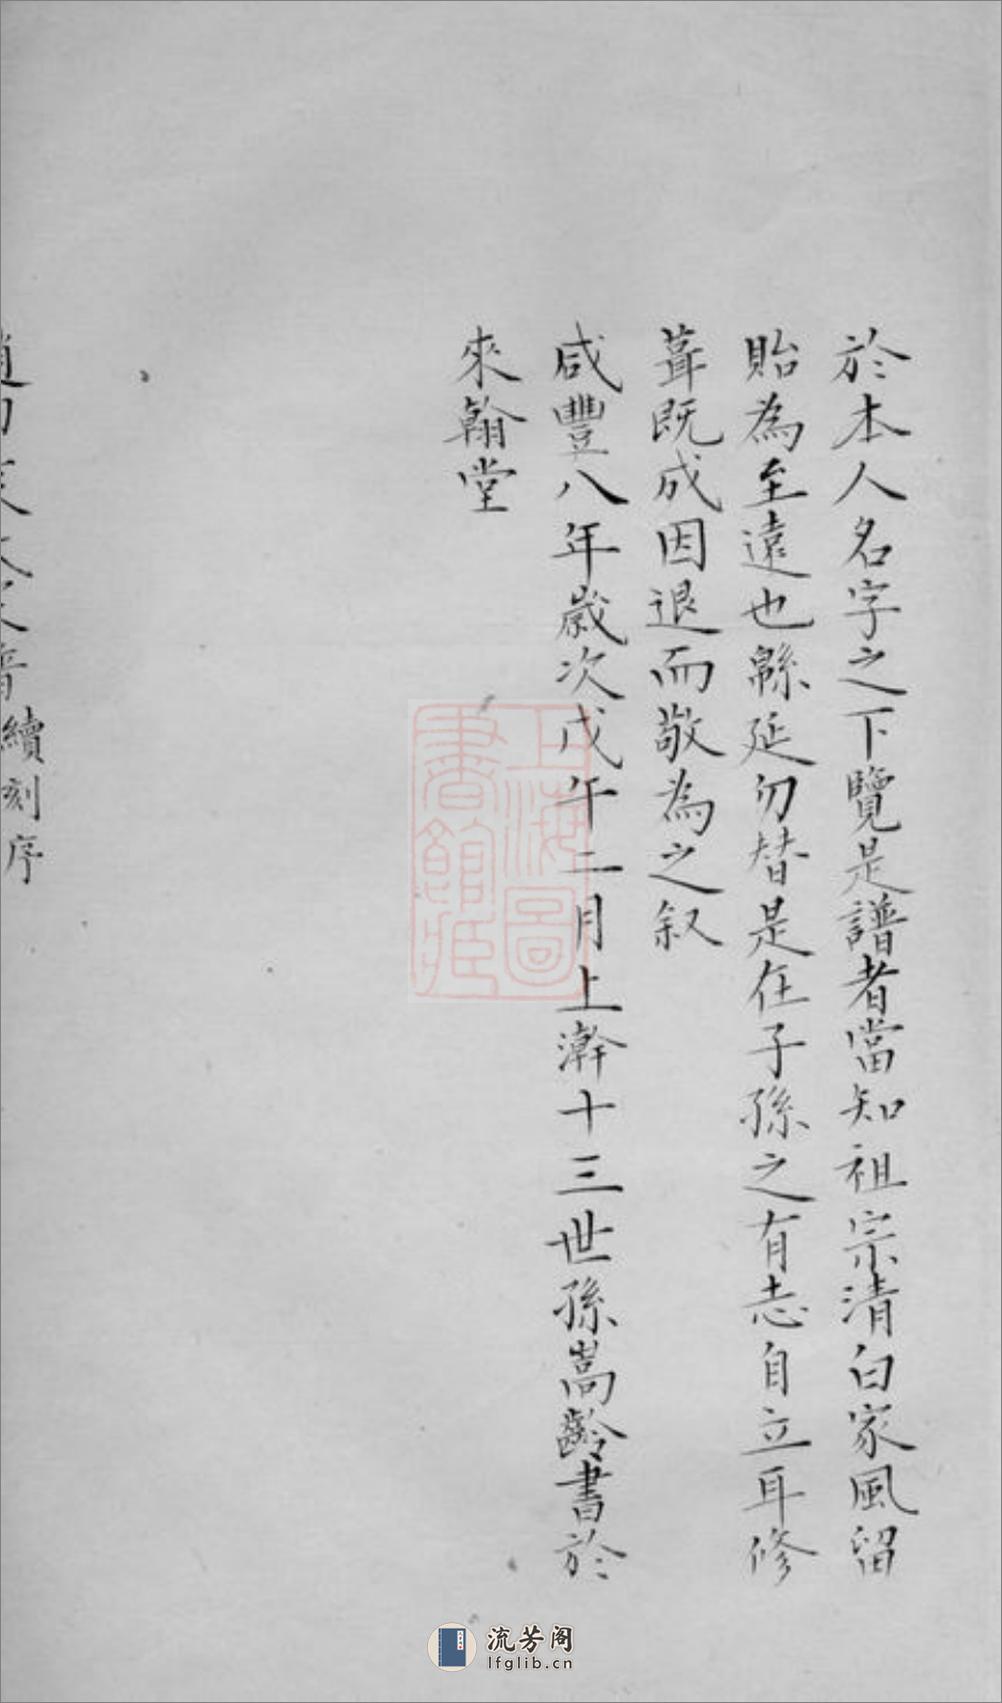 於本人名字之下覽是譜者當知祖宗清白家風留
貽為至遠也緜延勿替是在子孫之有志自立耳修
葺既成因退而敬為之叙
咸豐八年歲次戊午二月上澣十三世孫嵩齡書於
來翰堂
續刻序
上海圖
書館藏
流芳阁
lfglib.cn